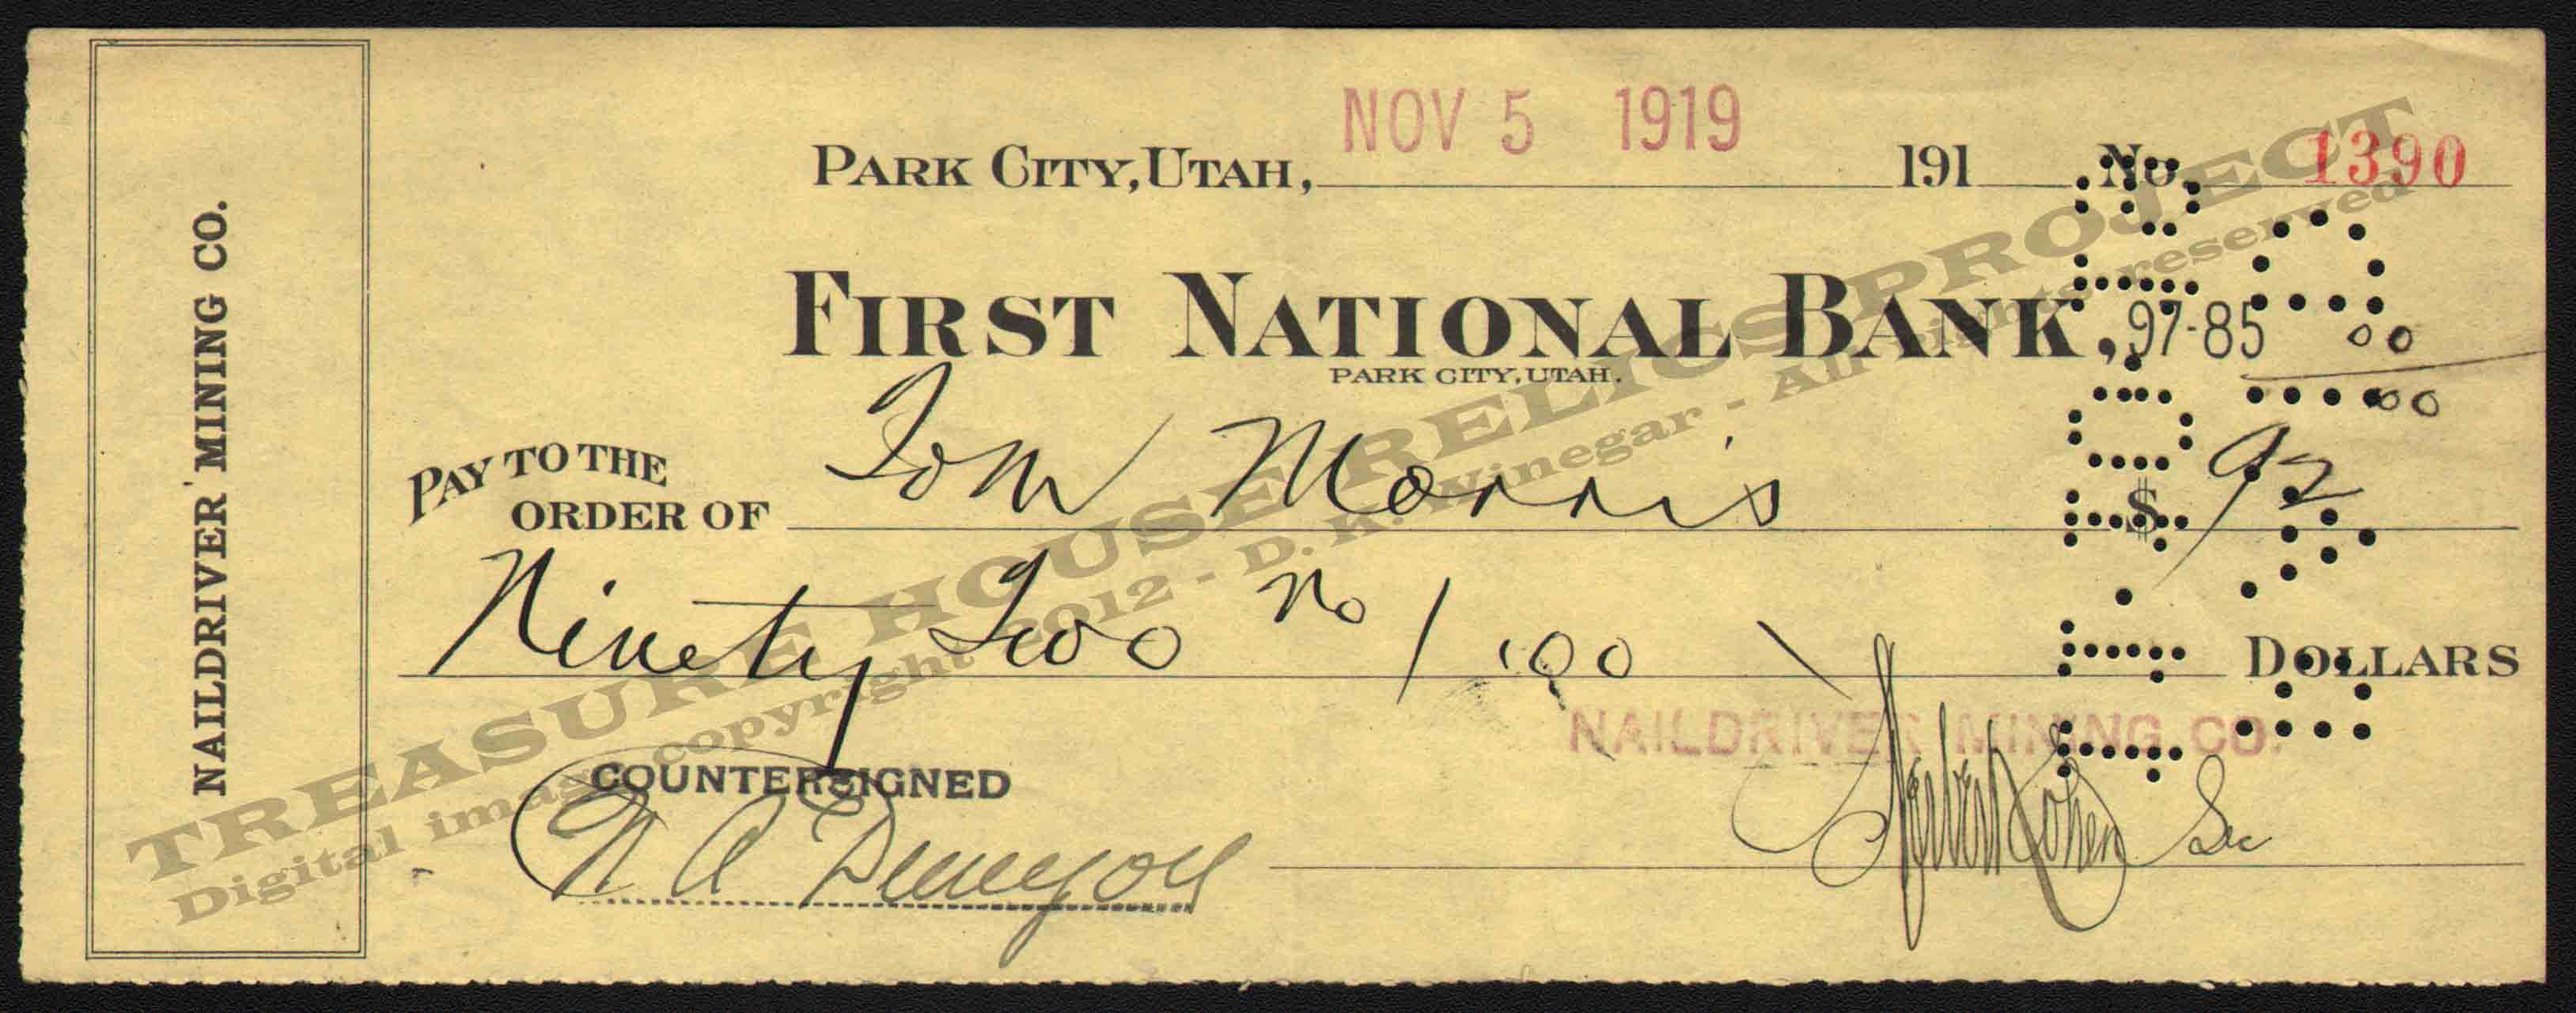 NAILDRIVER MINING CO.
NOV 5 1919
PARK CITY, UTAH, 191 No. 1390
FIRST NATIONAL BANK, 97-85
PARK CITY, UTAH.
00
00
PAY TO THE
ORDER OF Tom Morris $ 92
Ninety Two no / 100 DOLLARS
NAILDRIVER MINING CO.
COUNTERSIGNED
Cohen Sec
TREASURE HOUSE RELICS PROJECT
Digital image copyright 2012 - D. K. Winegar - All rights reserved